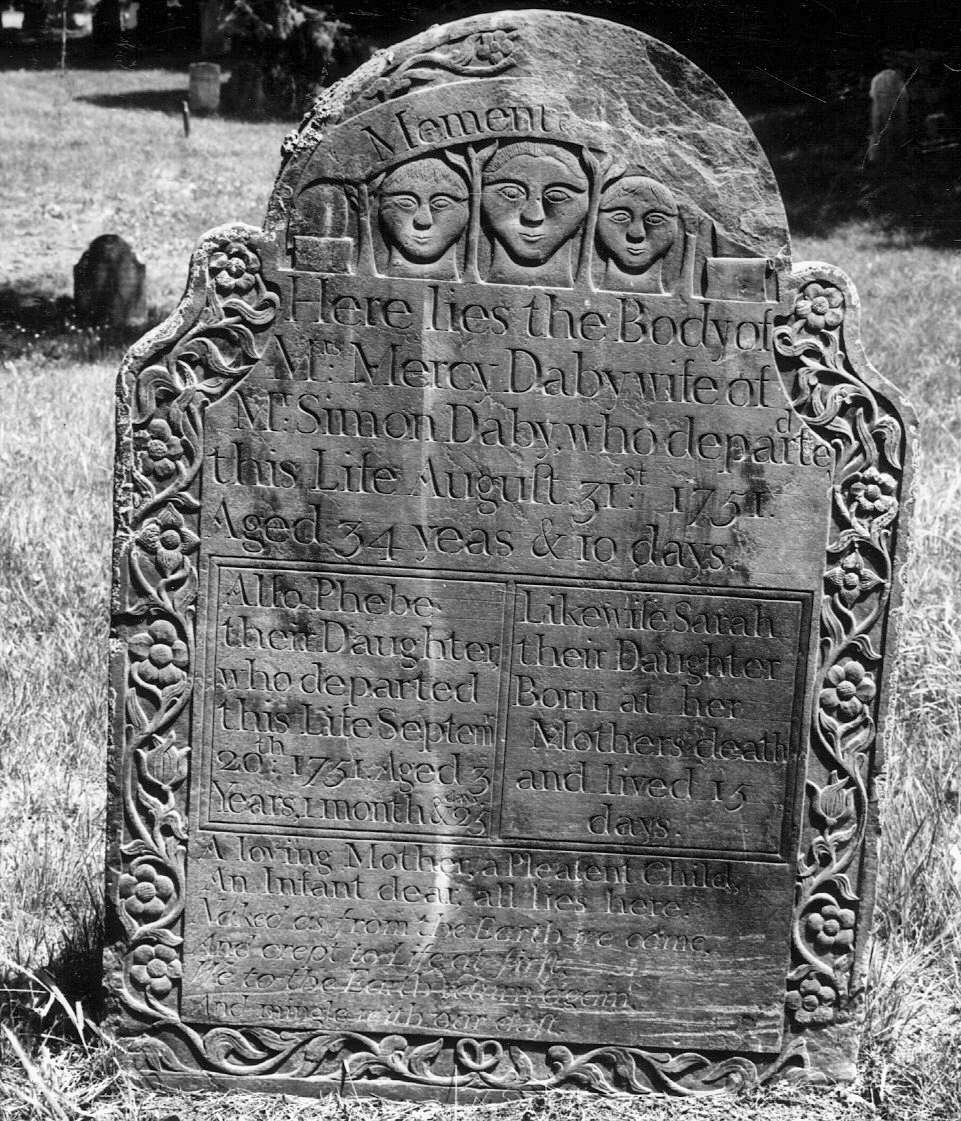 Memento
Here lies the Body of
Mʳˢ: Mercy Daby wife of
Mʳ: Simon Daby, who departᵈe
this Life Auguſt 31ˢᵗ: 1751.
Aged 34 yeas & 10 days.
Alſo Phebe
their Daughter,
who departed
this Life Septemʳ
20ᵗʰ: 1751. Aged 3
Years, 1 month & 25 days
Likewiſe Sarah
their Daughter
Born at her
Mothers death
and lived 15
days.
A loving Mother, a Pleaſent Child,
An Infant dear, all lies here.
Naked as from the Earth we came,
And crept to Life at firſt,
We to the Earth return again
And mingle with our duſt.